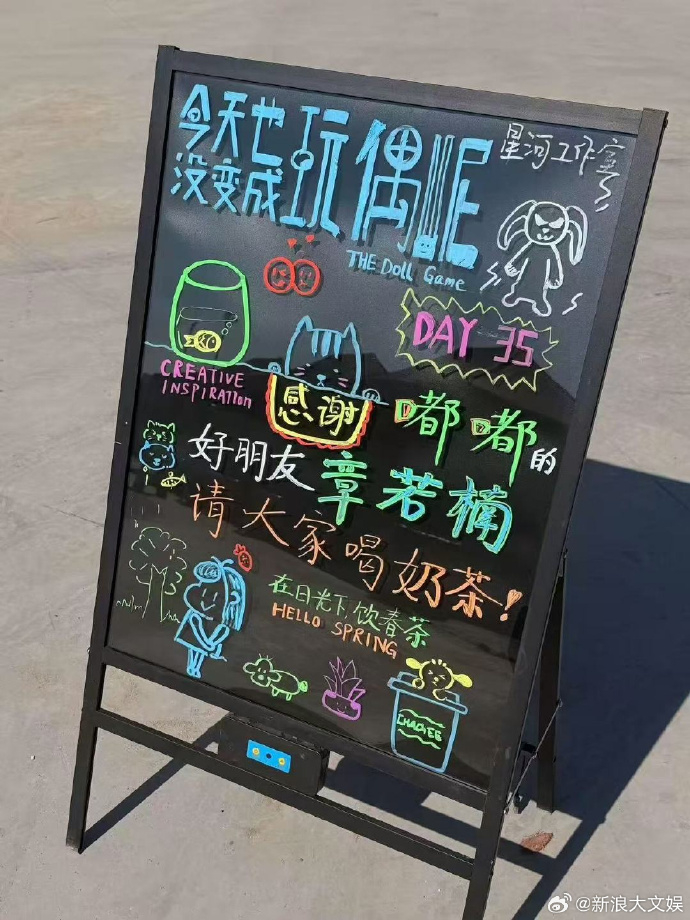 今天也
没变成玩偶呢
星河工作室
THE Doll Game
DAY 35
CREATIVE
INSPIRATION
感谢
嘟嘟的
好朋友章若楠
请大家喝奶茶!
在日光下饮春茶
HELLO SPRING
@新浪大文娱